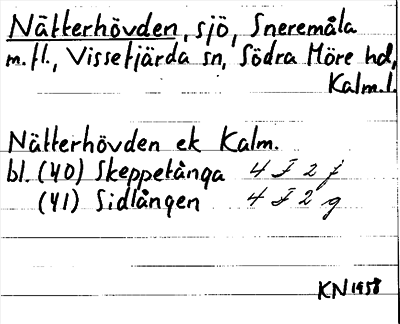 Nätterhövden, sjö, Sneremåla
m.fl., Vissefjärda sn, Södra Möre hd,
Kalm.l.
Nätterhövden ek Kalm.
bl. (40) Skeppetånga 4 F 2 f
(41) Sidlången 4 F 2 g
KN 1958